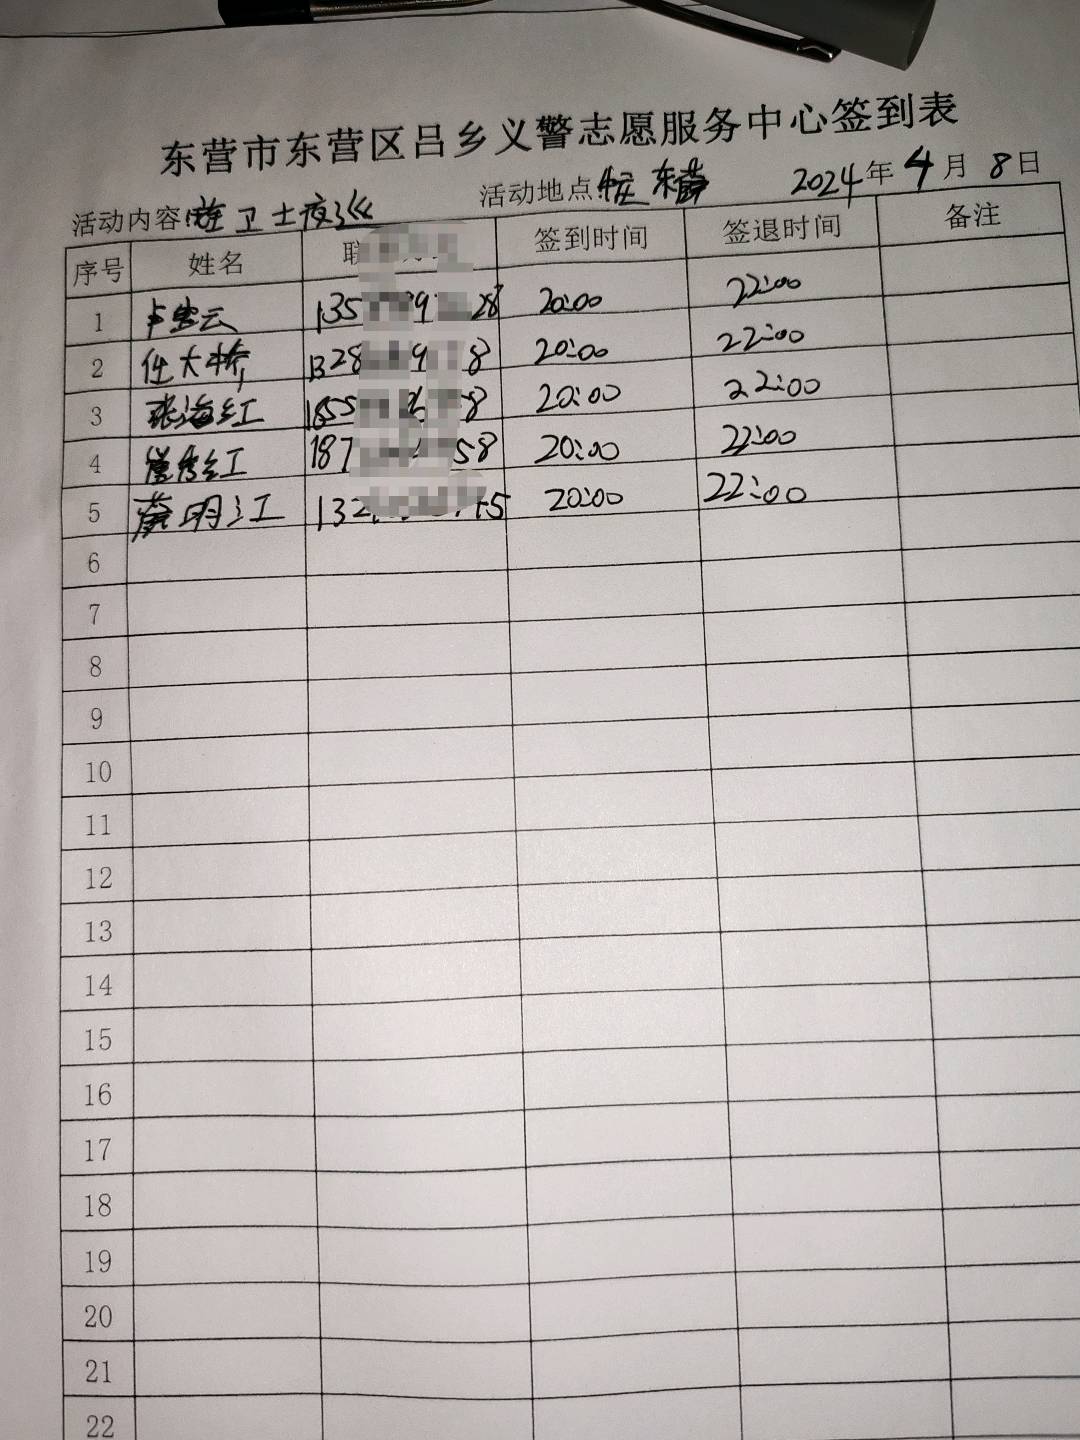 东营市东营区吕乡义警志愿服务中心签到表
活动内容 卫士夜巡 活动地点 东营 2024年4月8日
序号 姓名 联 签到时间 签退时间 备注
1 卢宝云 135 9 28 20:00 22:00
2 任大桥 1328 9 8 20:00 22:00
3 张海红 1855 8 20:00 22:00
4 秀红 187 58 20:00 22:00
5 蔡明江 132 45 20:00 22:00
6
7
8
9
10
11
12
13
14
15
16
17
18
19
20
21
22